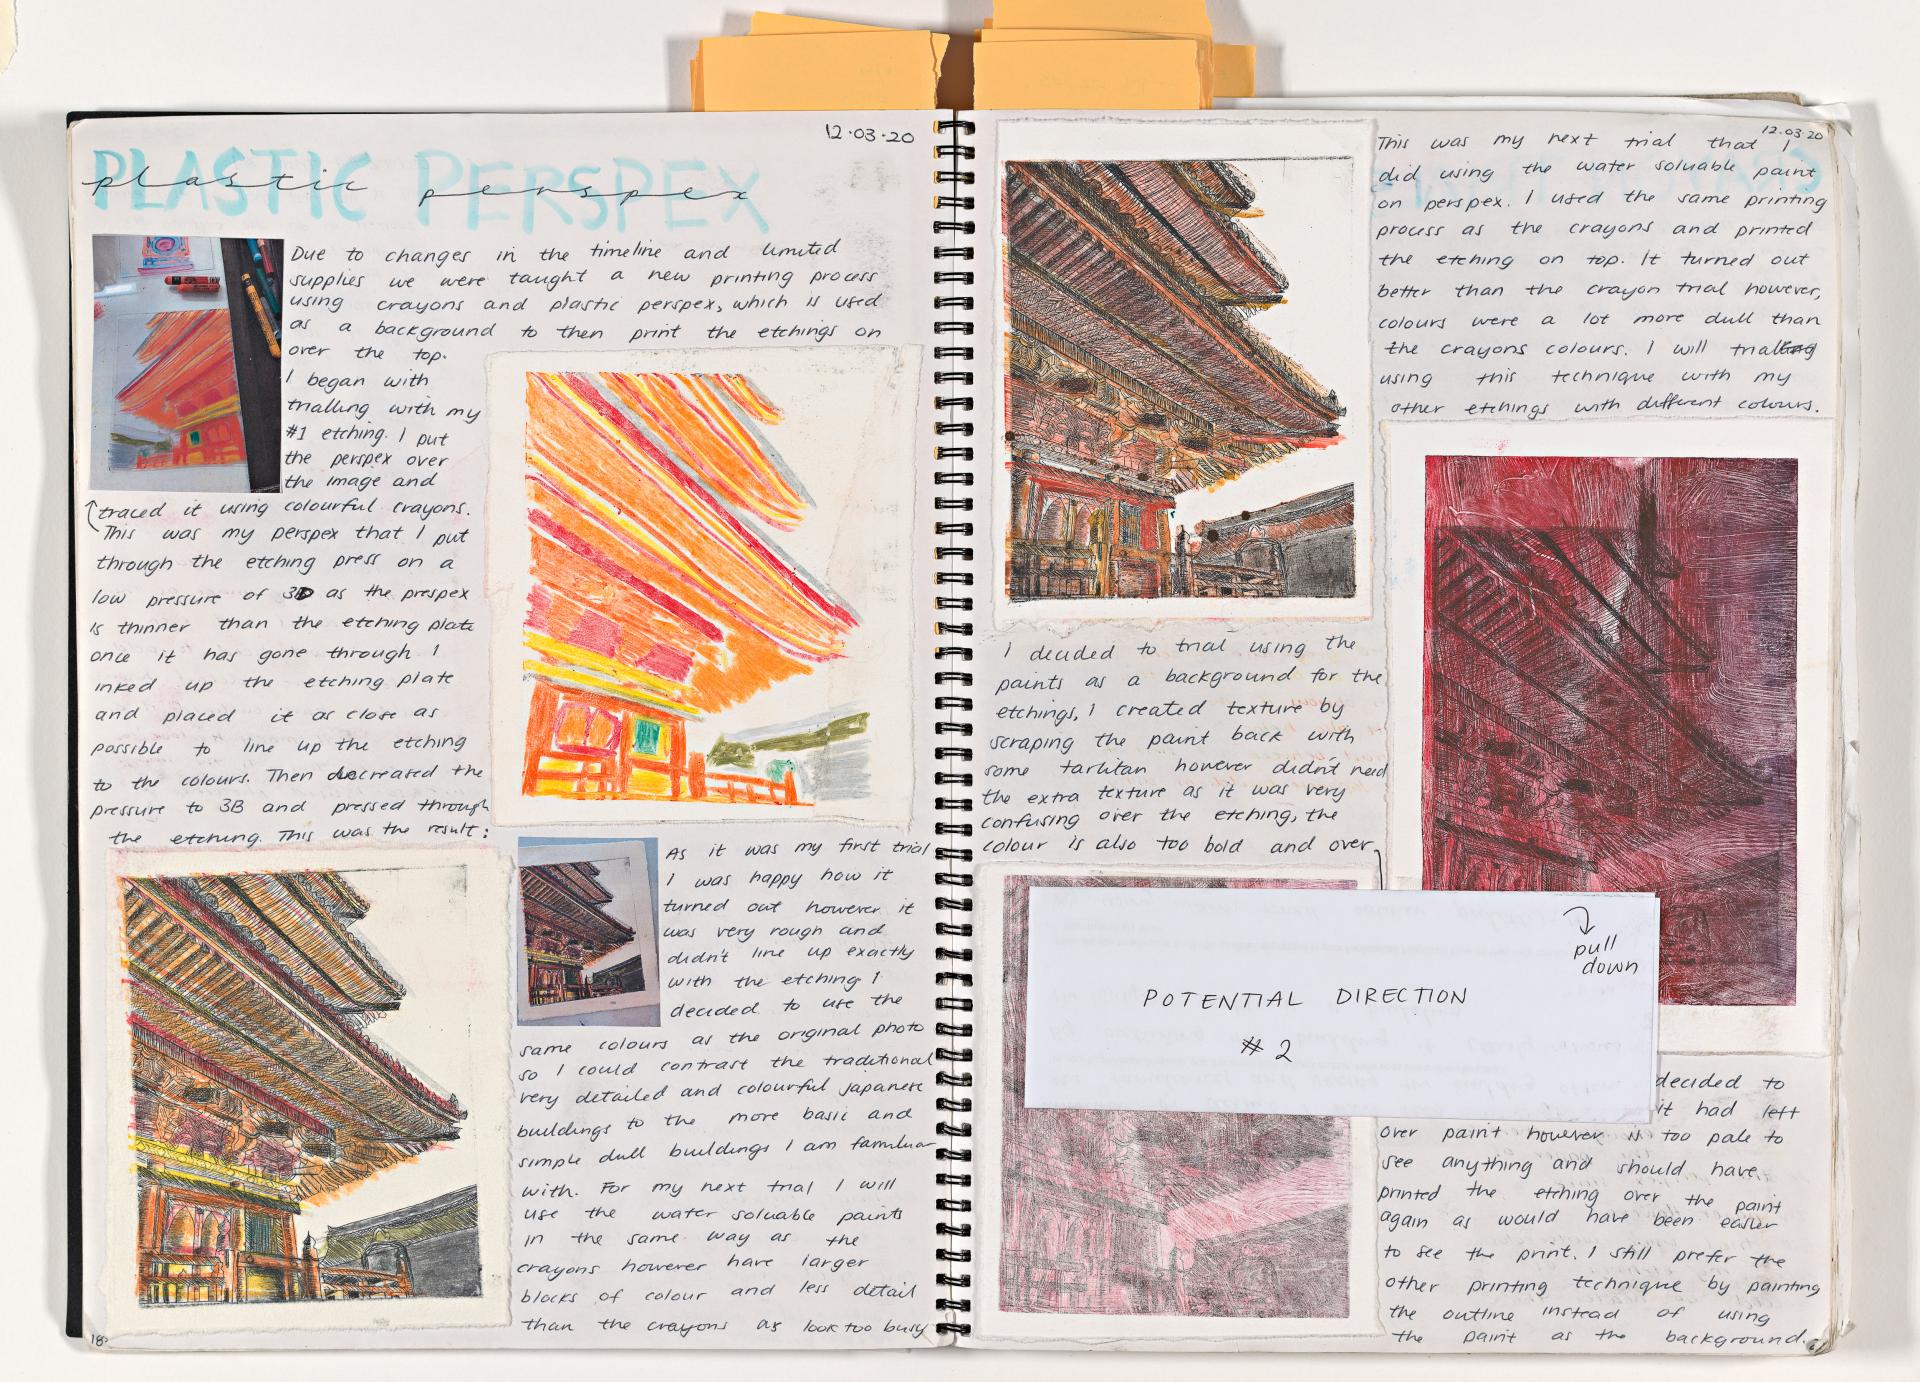 12.03.20
PLASTIC PERSPEX
plastic perspex
Due to changes in the timeline and limited
supplies we were taught a new printing process
using crayons and plastic perspex, which is used
as a background to then print the etchings on
over the top.
I began with
trialling with my
#1 etching. I put
the perspex over
the image and
traced it using colourful crayons.
This was my perspex that I put
through the etching press on a
low pressure of as the prespex
is thinner than the etching plate
once it has gone through I
inked up the etching plate
and placed it as close as
possible to line up the etching
to the colours. Then decreased the
pressure to 3B and pressed through
the etching. This was the result:
As it was my first trial
I was happy how it
turned out however it
was very rough and
didn't line up exactly
with the etching I
decided to use the
same colours as the original photo
so I could contrast the traditional
very detailed and colourful japanese
buildings to the more basic and
simple dull buildings I am familiar
with. For my next trial I will
use the water soluable paints
in the same way as the
crayons however have larger
blocks of colour and less detail
than the crayons as look too busy
18
12.03.20
This was my next trial that I
did using the water soluable paint
on perspex. I used the same printing
process as the crayons and printed
the etching on top. It turned out
better than the crayon trial however,
colours were a lot more dull than
the crayons colours. I will trial
using this technique with my
other etchings with different colours.
I decided to trial using the
paints as a background for the
etchings, I created texture by
scraping the paint back with
some tarlitan however didn't need
the extra texture as it was very
confusing over the etching, the
colour is also too bold and over
pull
down
POTENTIAL DIRECTION
#2
decided to
it had left
over paint however is too pale to
see anything and should have
printed the etching over the paint
again as would have been easier
to see the print. I still prefer the
other printing technique by painting
the outline instead of using
the paint as the background.